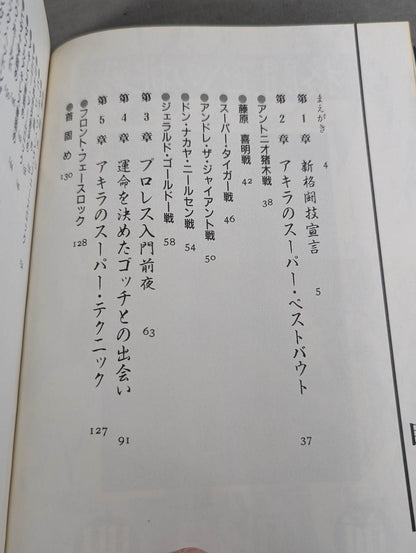 まえがき 4
第1章 新格闘技宣言 5
第2章 アキラのスーパー・ベストバウト 37
●アントニオ猪木戦 38
●藤原 喜明戦 42
●スーパー・タイガー戦 46
●アンドレ・ザ・ジャイアント戦 50
●ドン・ナカヤ・ニールセン戦 54
●ジェラルド・ゴールドー戦 58
第3章 プロレス入門前夜 63
第4章 運命を決めたゴッチとの出会い 91
第5章 アキラのスーパー・テクニック 127
●フロント・フェースロック 128
●首固め 130